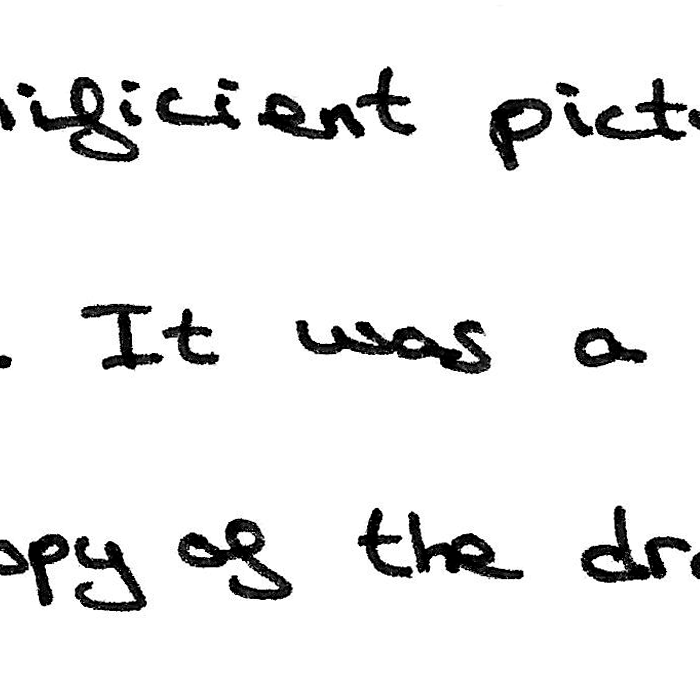 nificient pictu
. It was a
opy of the dra